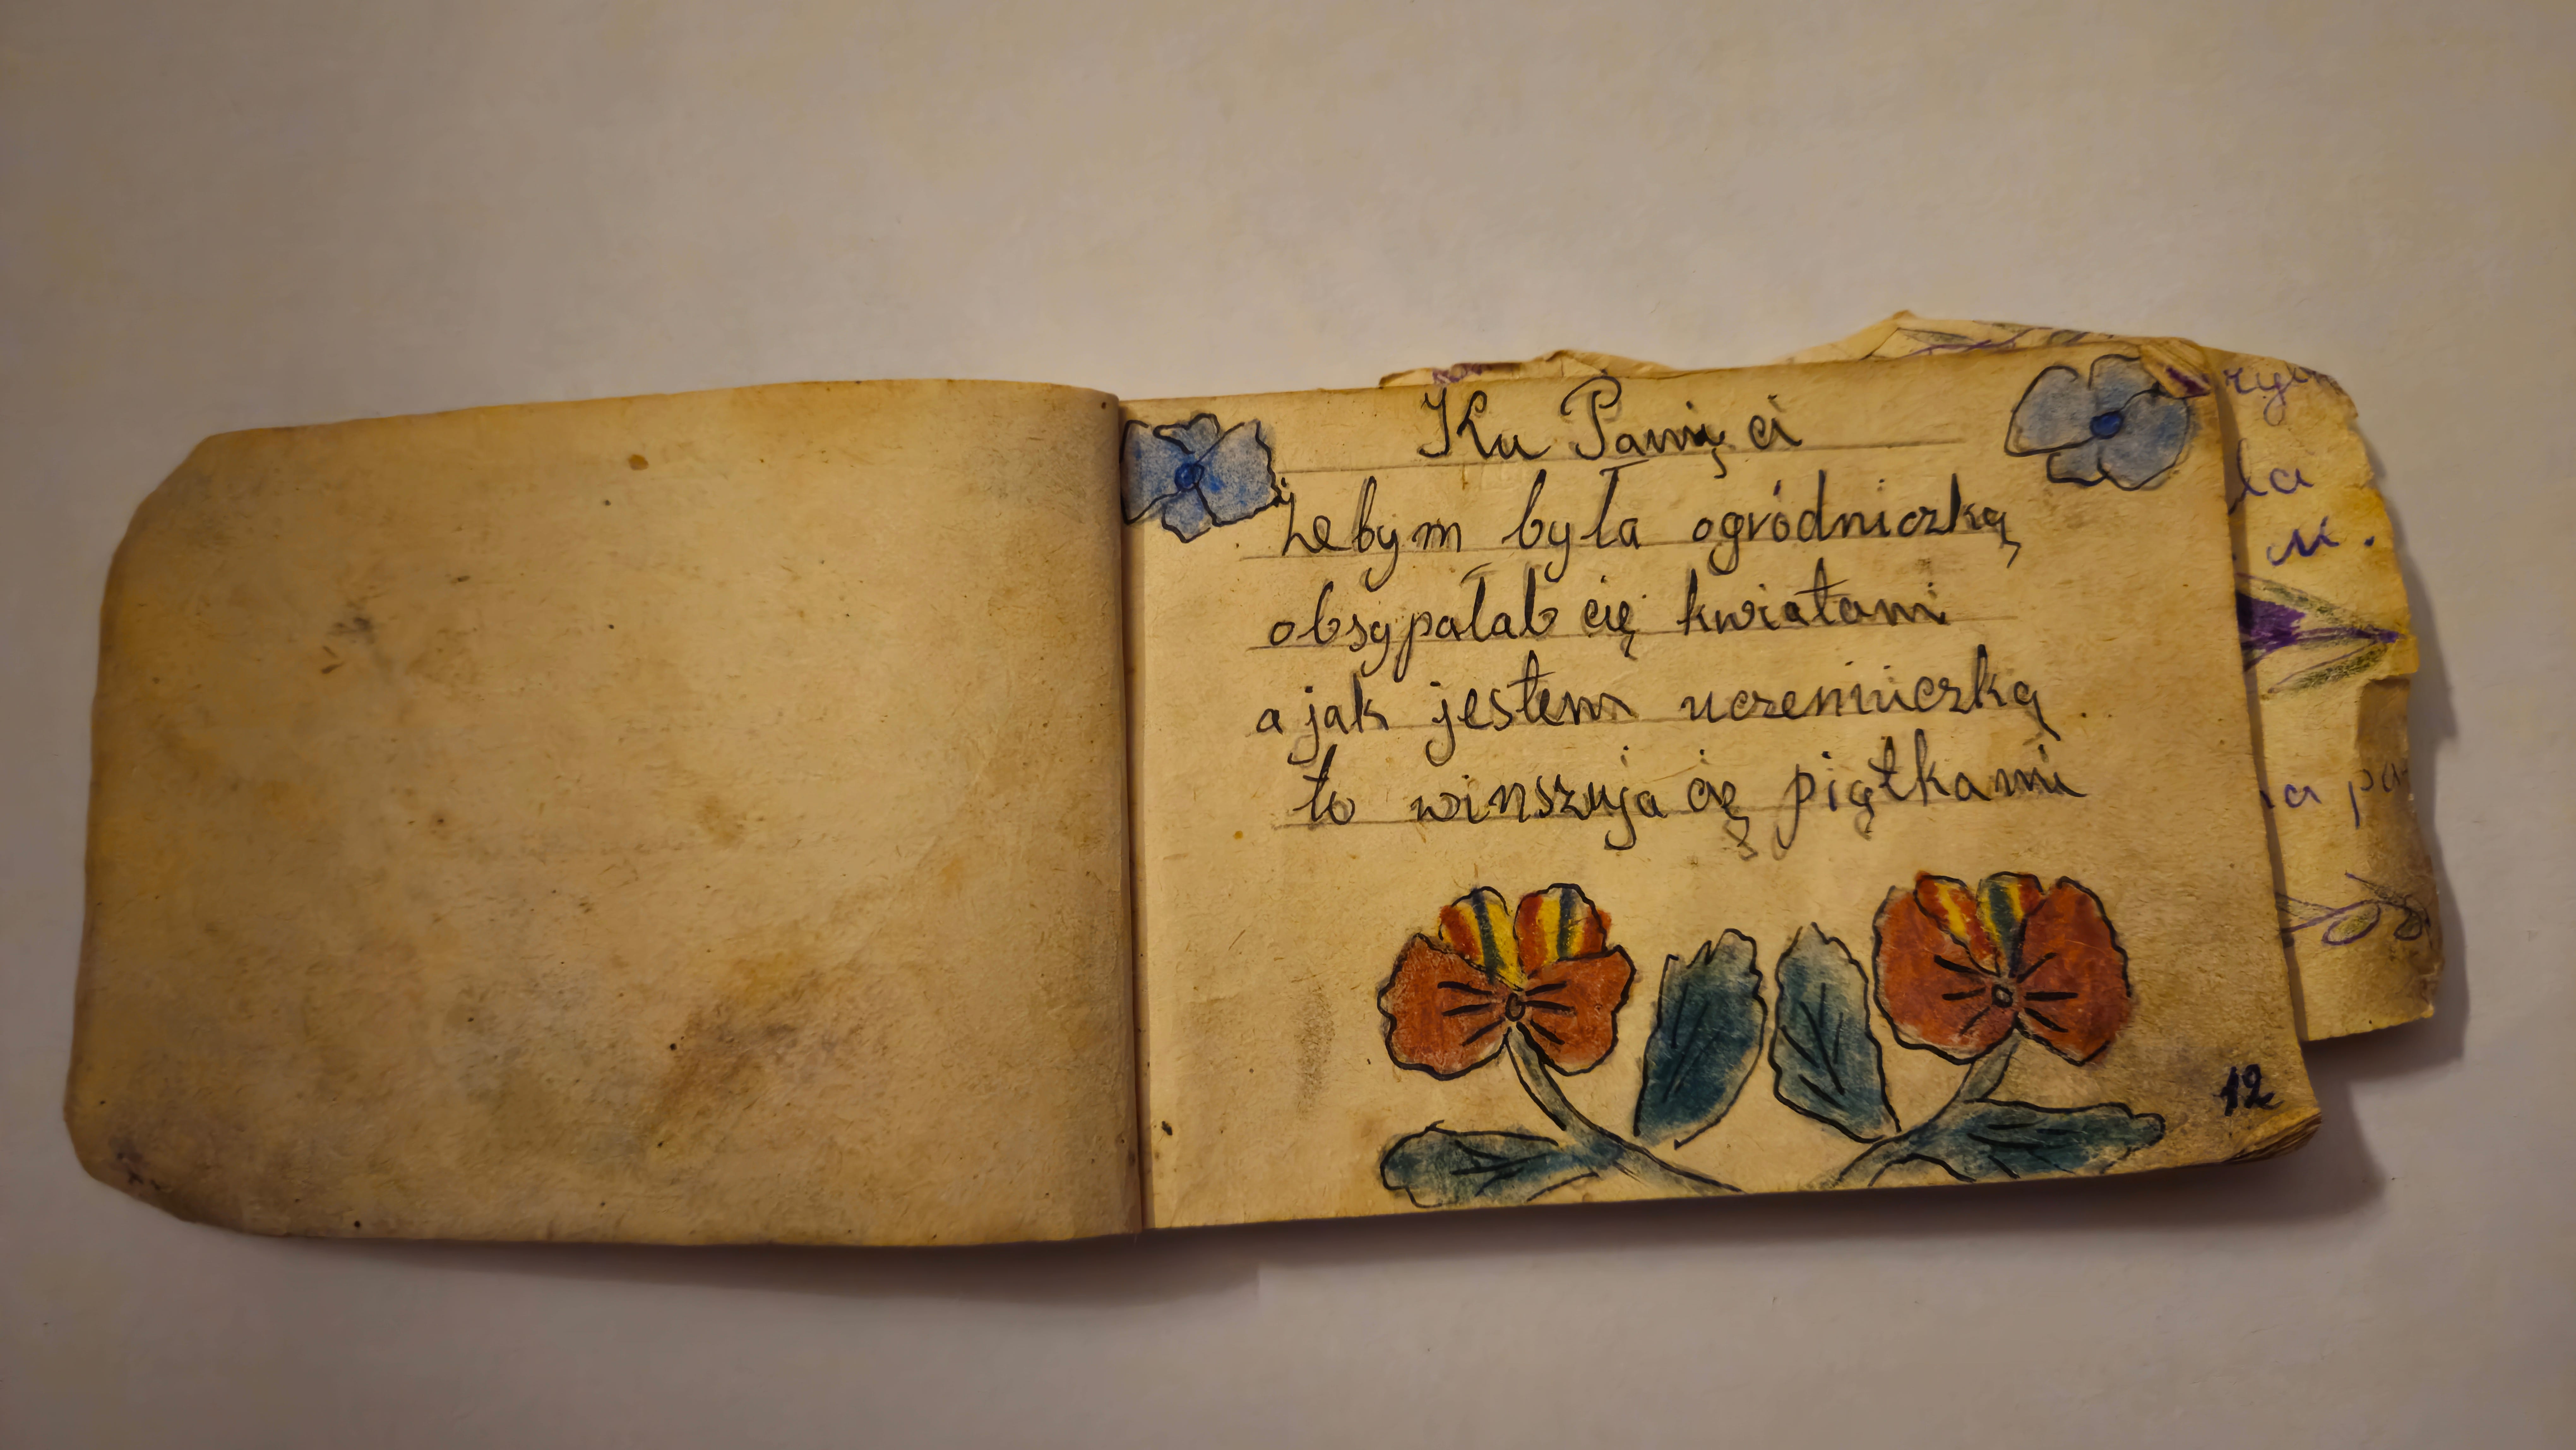 Ku Pamięci
Żebym była ogródniczką
obsypałab cię kwiatami
a jak jestem uczeniuczką
to winszuja cię piątkami
12
la
M.